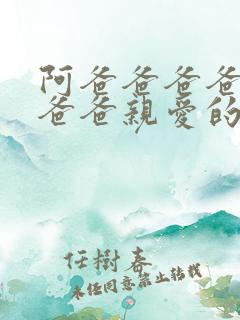 阿爸爸爸爸
爸爸親愛的
任樹春
未經同意禁止轉載